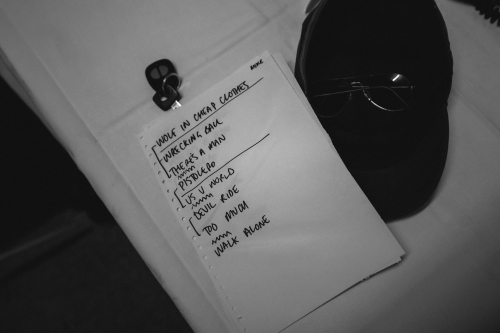 WOLF IN CHEAP CLOTHES
WRECKING BALL
THERE'S A MAN
PISTOLERO
US V WORLD
DEVIL RIDE
TOO MUCH
WALK ALONE